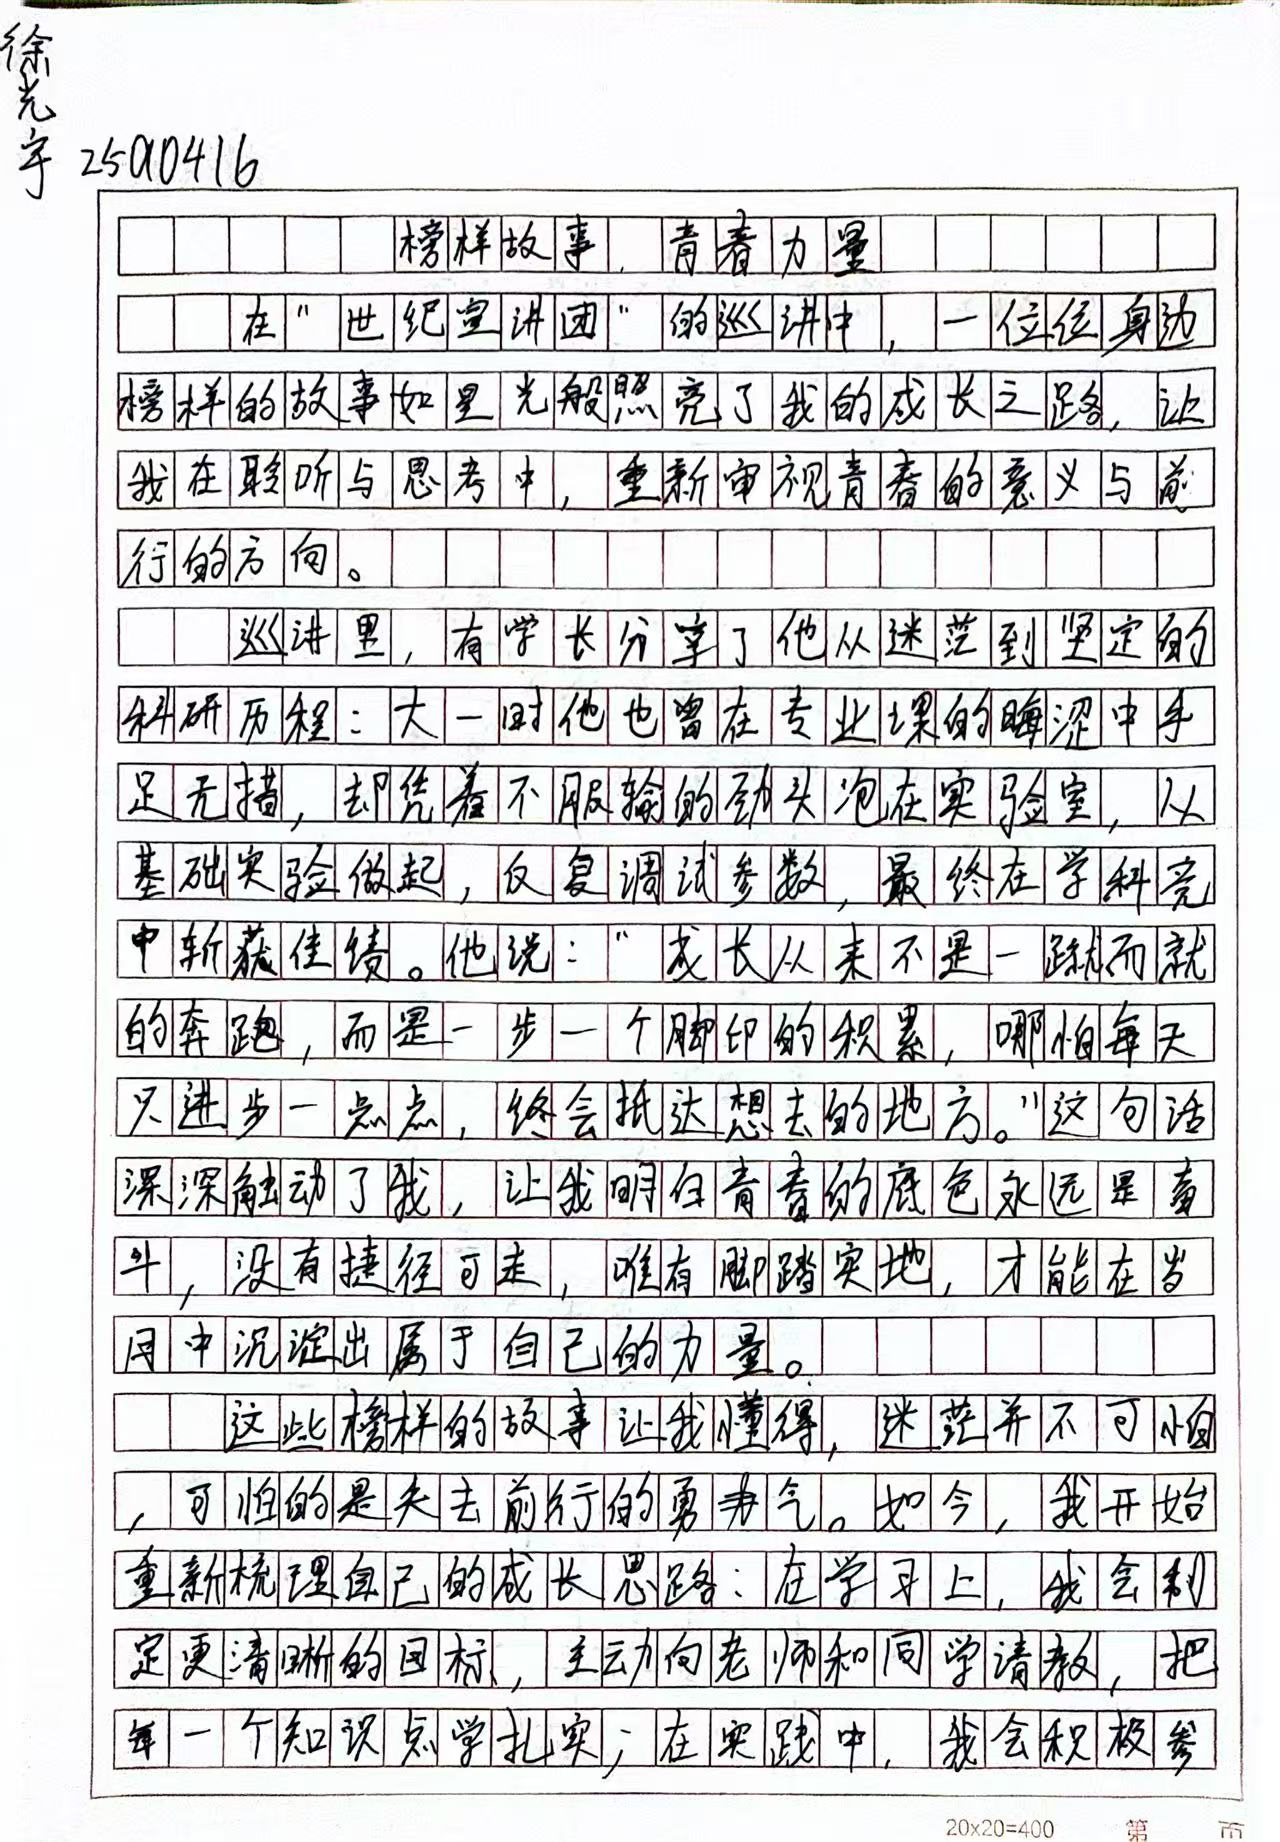 徐光宇
25010416
榜样故事，青春力量
在"世纪宣讲团"的巡讲中，一位位身边
榜样的故事如星光般照亮了我的成长之路，让
我在聆听与思考中，重新审视青春的意义与前
行的方向。
巡讲里，有学长分享了他从迷茫到坚定的
科研历程：大一时他也曾在专业课的晦涩中手
足无措，却凭着不服输的劲头泡在实验室，从
基础实验做起，反复调试参数，最终在学科竞
中斩获佳绩。他说："成长从来不是一蹴而就
的奔跑，而是一步一个脚印的积累，哪怕每天
只进步一点点，终会抵达想去的地方。"这句话
深深触动了我，让我明白青春的底色永远是奋
斗，没有捷径可走，唯有脚踏实地，才能在岁
月中沉淀出属于自己的力量。
这些榜样的故事让我懂得，迷茫并不可怕
，可怕的是失去前行的勇气。如今，我开始
重新梳理自己的成长思路：在学习上，我会制
定更清晰的目标，主动向老师和同学请教，把
每一个知识点学扎实；在实践中，我会积极参
20×20=400 第 页